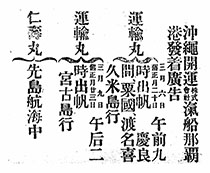 沖繩開運株式會社滊船那覇
港發着廣告
運輸丸
三月六日
舊正月二十日
午前九
時出帆 慶良
間粟國渡名喜
久米島行
運輸丸
三月九日
舊正月廿三日
午后二
時出帆
宮古島行
仁壽丸
先島航海中